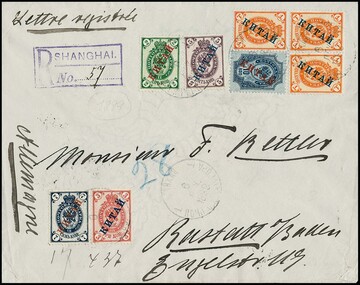 Lettre registrée
R SHANGHAI.
No. 57
КИТАЙ
КИТАЙ
КИТАЙ
КИТАЙ
КИТАЙ
КИТАЙ
КИТАЙ
Allemagne
Monsieur F. Kettler
28
КИТАЙ
КИТАЙ
Rastatt/Baden
Engelstr.
17 437